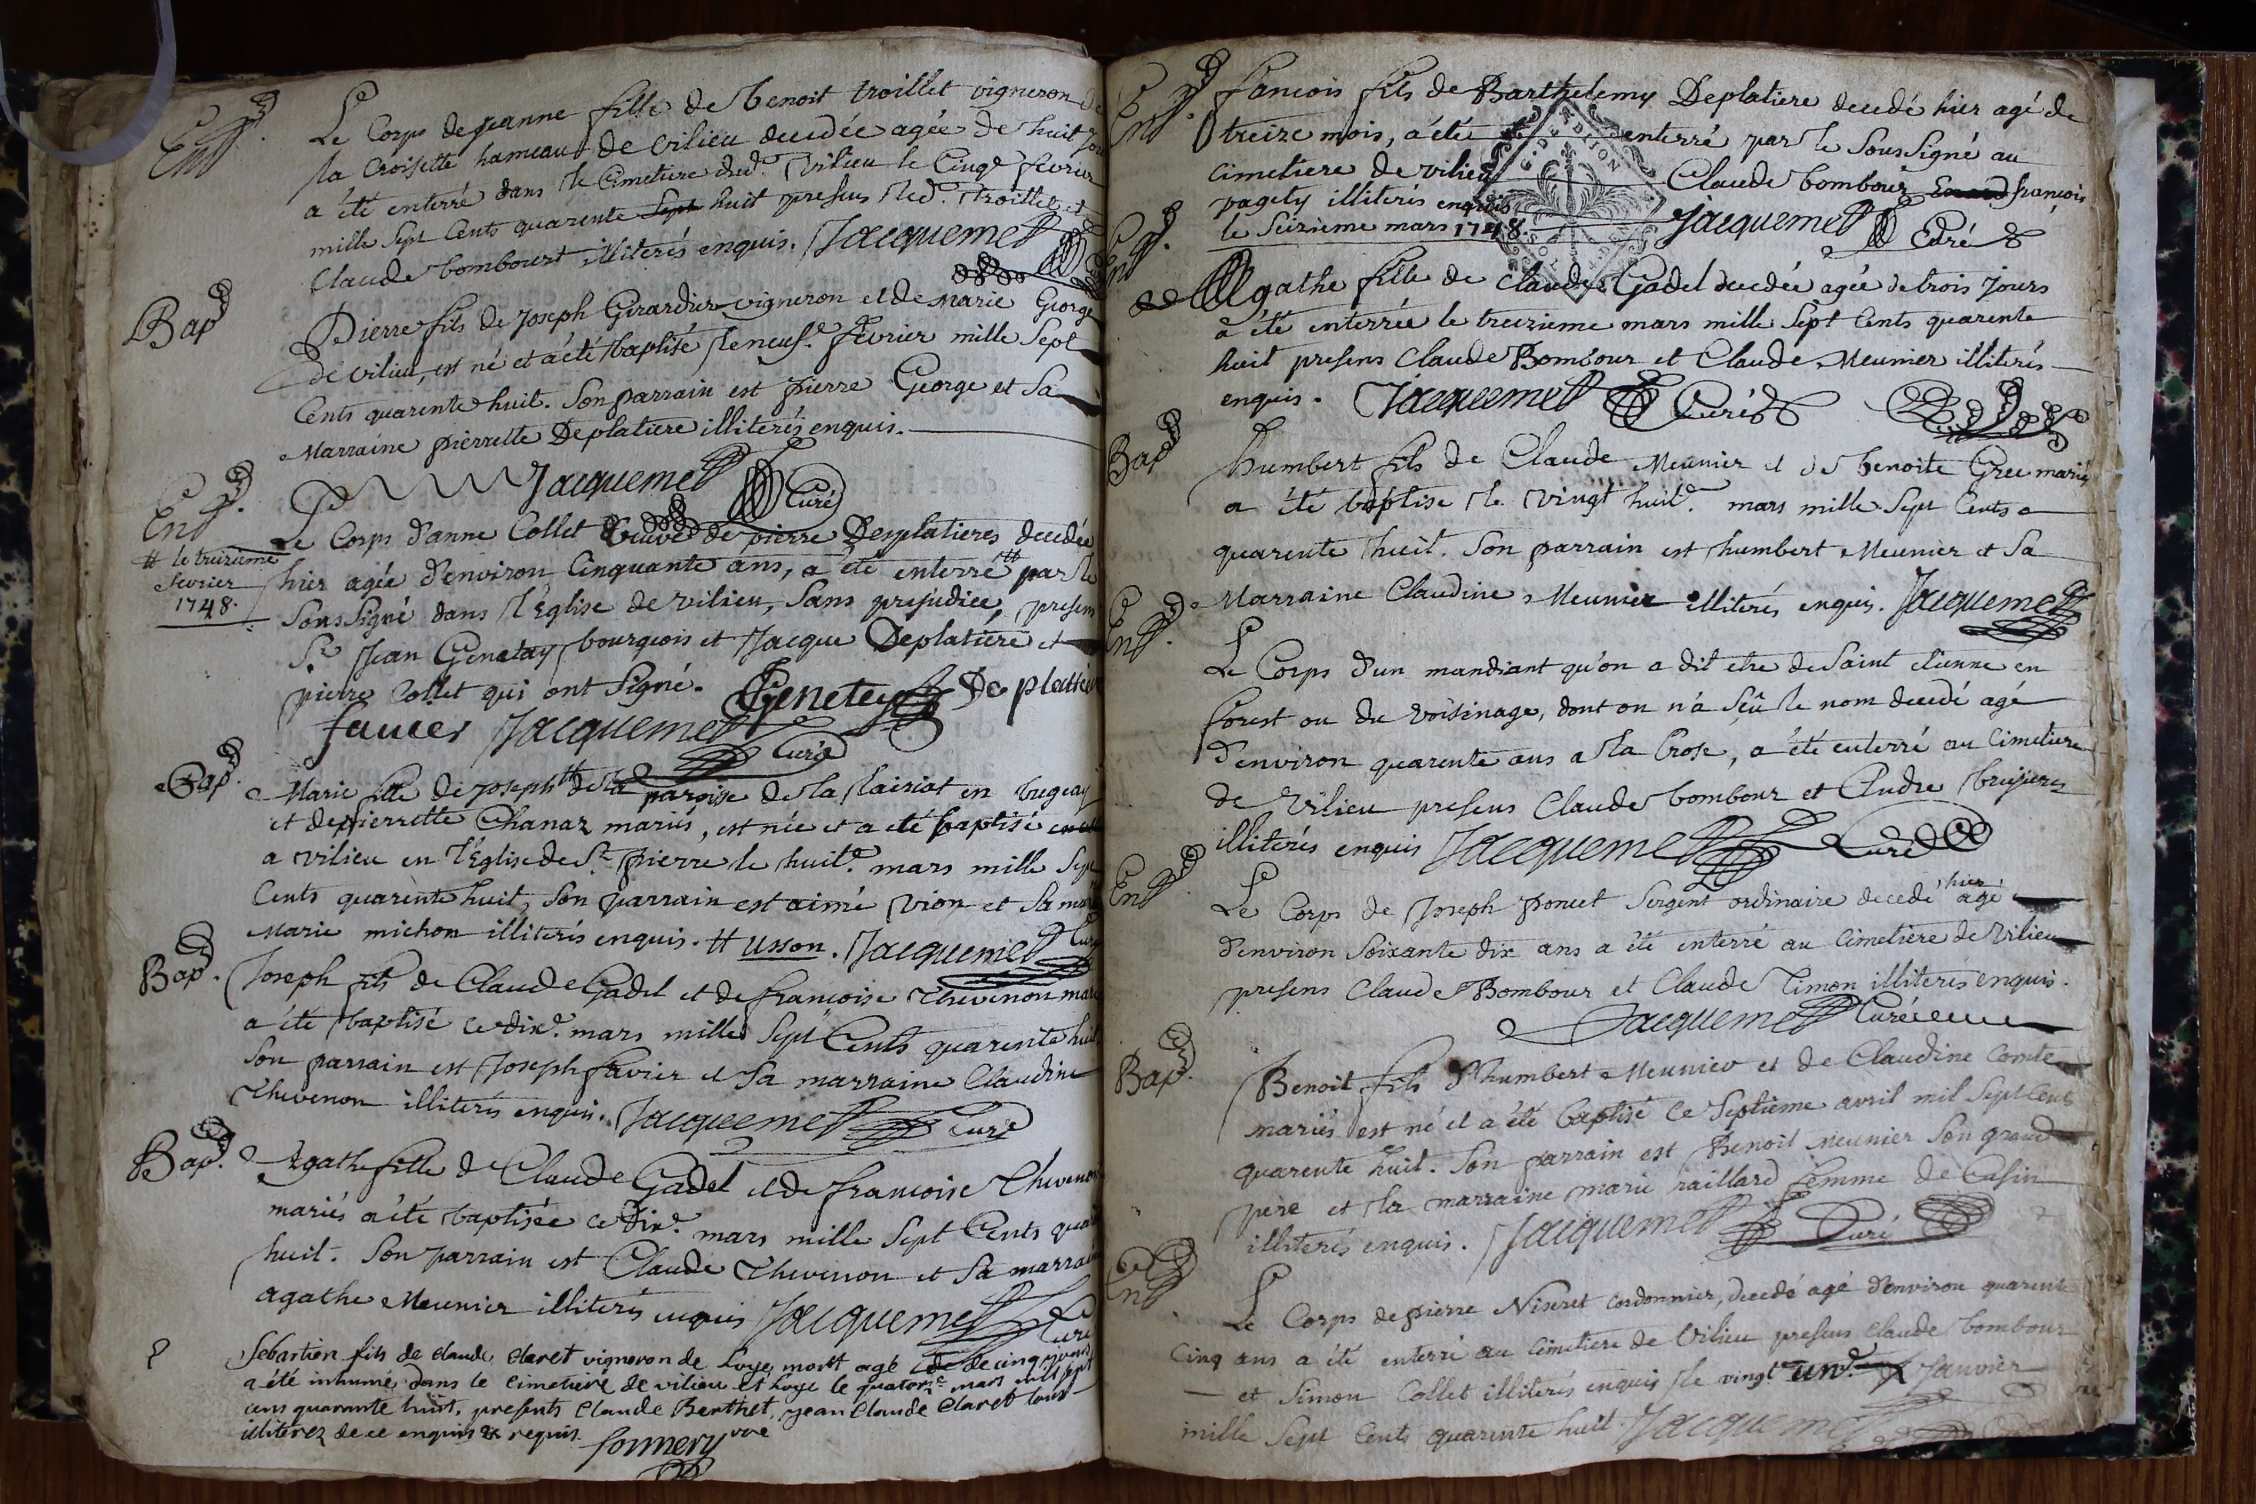 Ent
Le Corps de jeanne fille de benoit troillet vigneron de
la Croisette hameau de vilieu decedée agée de huit jours
a été enterré dans le Cimetiere dud. vilieu le Cinqe fevrier
mille Sept Cents quarente Sept huit presens led. troillet et
Claude bombourt illiterés enquis. Jacquemet
Bap
Pierre fils de joseph Girardier vigneron et de marie George
de vilieu, est né et a été baptisé le neufe fevrier mille Sept
Cents quarente huit. Son parrain est pierre George et Sa
Marraine pierrette Deplatiere illiterés enquis.
Jacquemet Curé
Ent
Le Corps d'anne Collet veuve de pierre Desplatieres decedée
# le treizieme
fevrier
1748.
hier agée d'environ Cinquante ans, a été enterré # par le
Soussigné dans l'Eglise de vilieu, Sans prejudice, presens
Sr Jean Genetay bourgeois et Jacque Deplatiere et
pierre Collet qui ont Signé. Genetey De platiere
Jacquemet Curé
Bap.
Marie fille de joseph # de la paroise de la in bugeay
et de pierrette Chanaz mariés, est née et a été baptisé
a vilieu en l'Eglise de St pierre le huite mars mille Sept
Cents quarente huit, Son parrain est aimé vion et Sa
Marie michon illiterés enquis. # Usson. Jacquemet Curé
Bap.
Joseph fils de Claude Gadel et de francoise Thevenon mariés
a été baptisé ce dixe mars mille Sept Cents quarente huit
Son parrain est Joseph favier et Sa marraine Claudine
Thevenon illiterés enquis. Jacquemet Curé
Bap.
Agathe fille de Claude Gadel et de francoise Thevenon
mariés a été baptisée ce dixe mars mille Sept Cents
huit. Son parrain est Claude Thevenon et Sa marraine
agathe Meunier illiterés enquis Jacquemet Curé
Sebastien fils de claude claret vigneron de Loye mort agé de cinq jours
a été inhumé dans le cimetiere de vilieu et Loye le quatorze mars mil sept
cens quarante huit, presents Claude Berthet, jean Claude Claret tous
illiterez de ce enquis & requis formery vre
Ent
francois fils de Barthelemy Deplatiere decedé hier agé de
treize mois, a été enterré par le Soussigné au
Cimetiere de vilieu Claude bombour francois
pagety illiterés enquis
le Seizieme mars 1748. Jacquemet Curé
Ent
Agathe fille de Claude Gadel decedée agée de trois jours
a été enterrée le treizieme mars mille Sept Cents quarente
huit presens Claude Bombour et Claude Meunier illiterés
enquis. Jacquemet Curé
Bap
humbert fils de Claude Meunier et de benoite Gree mariés
a été baptise le vingt huite mars mille Sept Cents
quarente huit. Son parrain est humbert Meunier et Sa
Marraine Claudine Meunier illiterés enquis. Jacquemet
Ent.
Le Corps d'un mandiant qu'on a dit etre de Saint etienne en
forest ou du voisinage, dont on n'a Seû le nom decedé agé
d'environ quarente ans a la Crose, a été enterré au Cimetiere
de vilieu presens Claude bombour et Andre bruyeres
illiterés enquis Jacquemet Curé
Ent
Le Corps de Joseph poncet Sergent ordinaire decedé hier agé
d'environ Soixante dix ans a été enterré au Cimetiere de vilieu
presens Claude Bombour et Claude Timon illiterés enquis.
Jacquemet Curé
Bap.
Benoit fils d'humbert Meunier et de Claudine Comte
mariés est né et a été baptisé ce Septieme avril mil Sept Cents
quarente huit. Son parrain est Benoit Meunier Son grand
pere et la marraine marie raillard femme de Casin
illiterés enquis. Jacquemet Curé
Ent
Le Corps de pierre Niseret Cordonnier, decedé agé d'environ quarente
Cinq ans a été enterré au Cimetiere de vilieu presens Claude bombour
et Simon Collet illiterés enquis le vingt une Janvier
mille Sept Cents quarente huit. Jacquemet